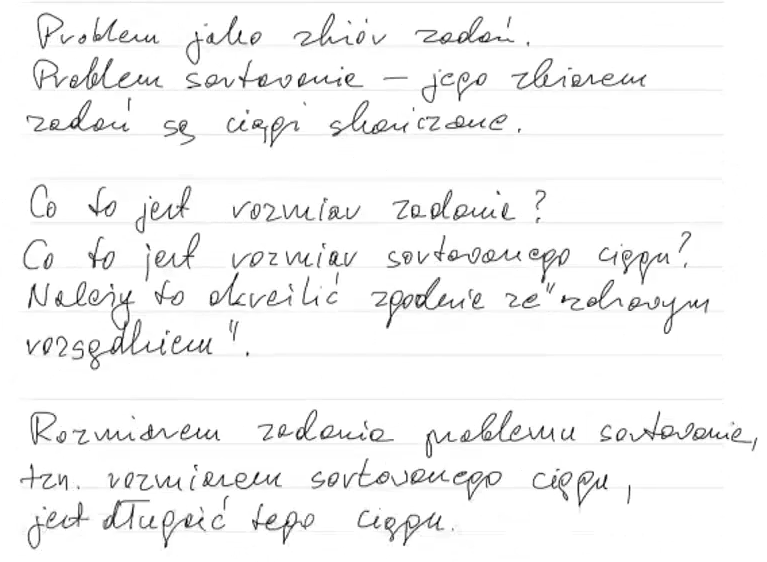 Problem jako zbiór zadań.
Problem sortowania – jego zbiorem
zadań są ciągi skończone.
Co to jest rozmiar zadania?
Co to jest rozmiar sortowanego ciągu?
Należy to określić zgodnie ze "zdrowym
rozsądkiem".
Rozmiarem zadania problemu sortowania,
tzn. rozmiarem sortowanego ciągu,
jest długość tego ciągu.